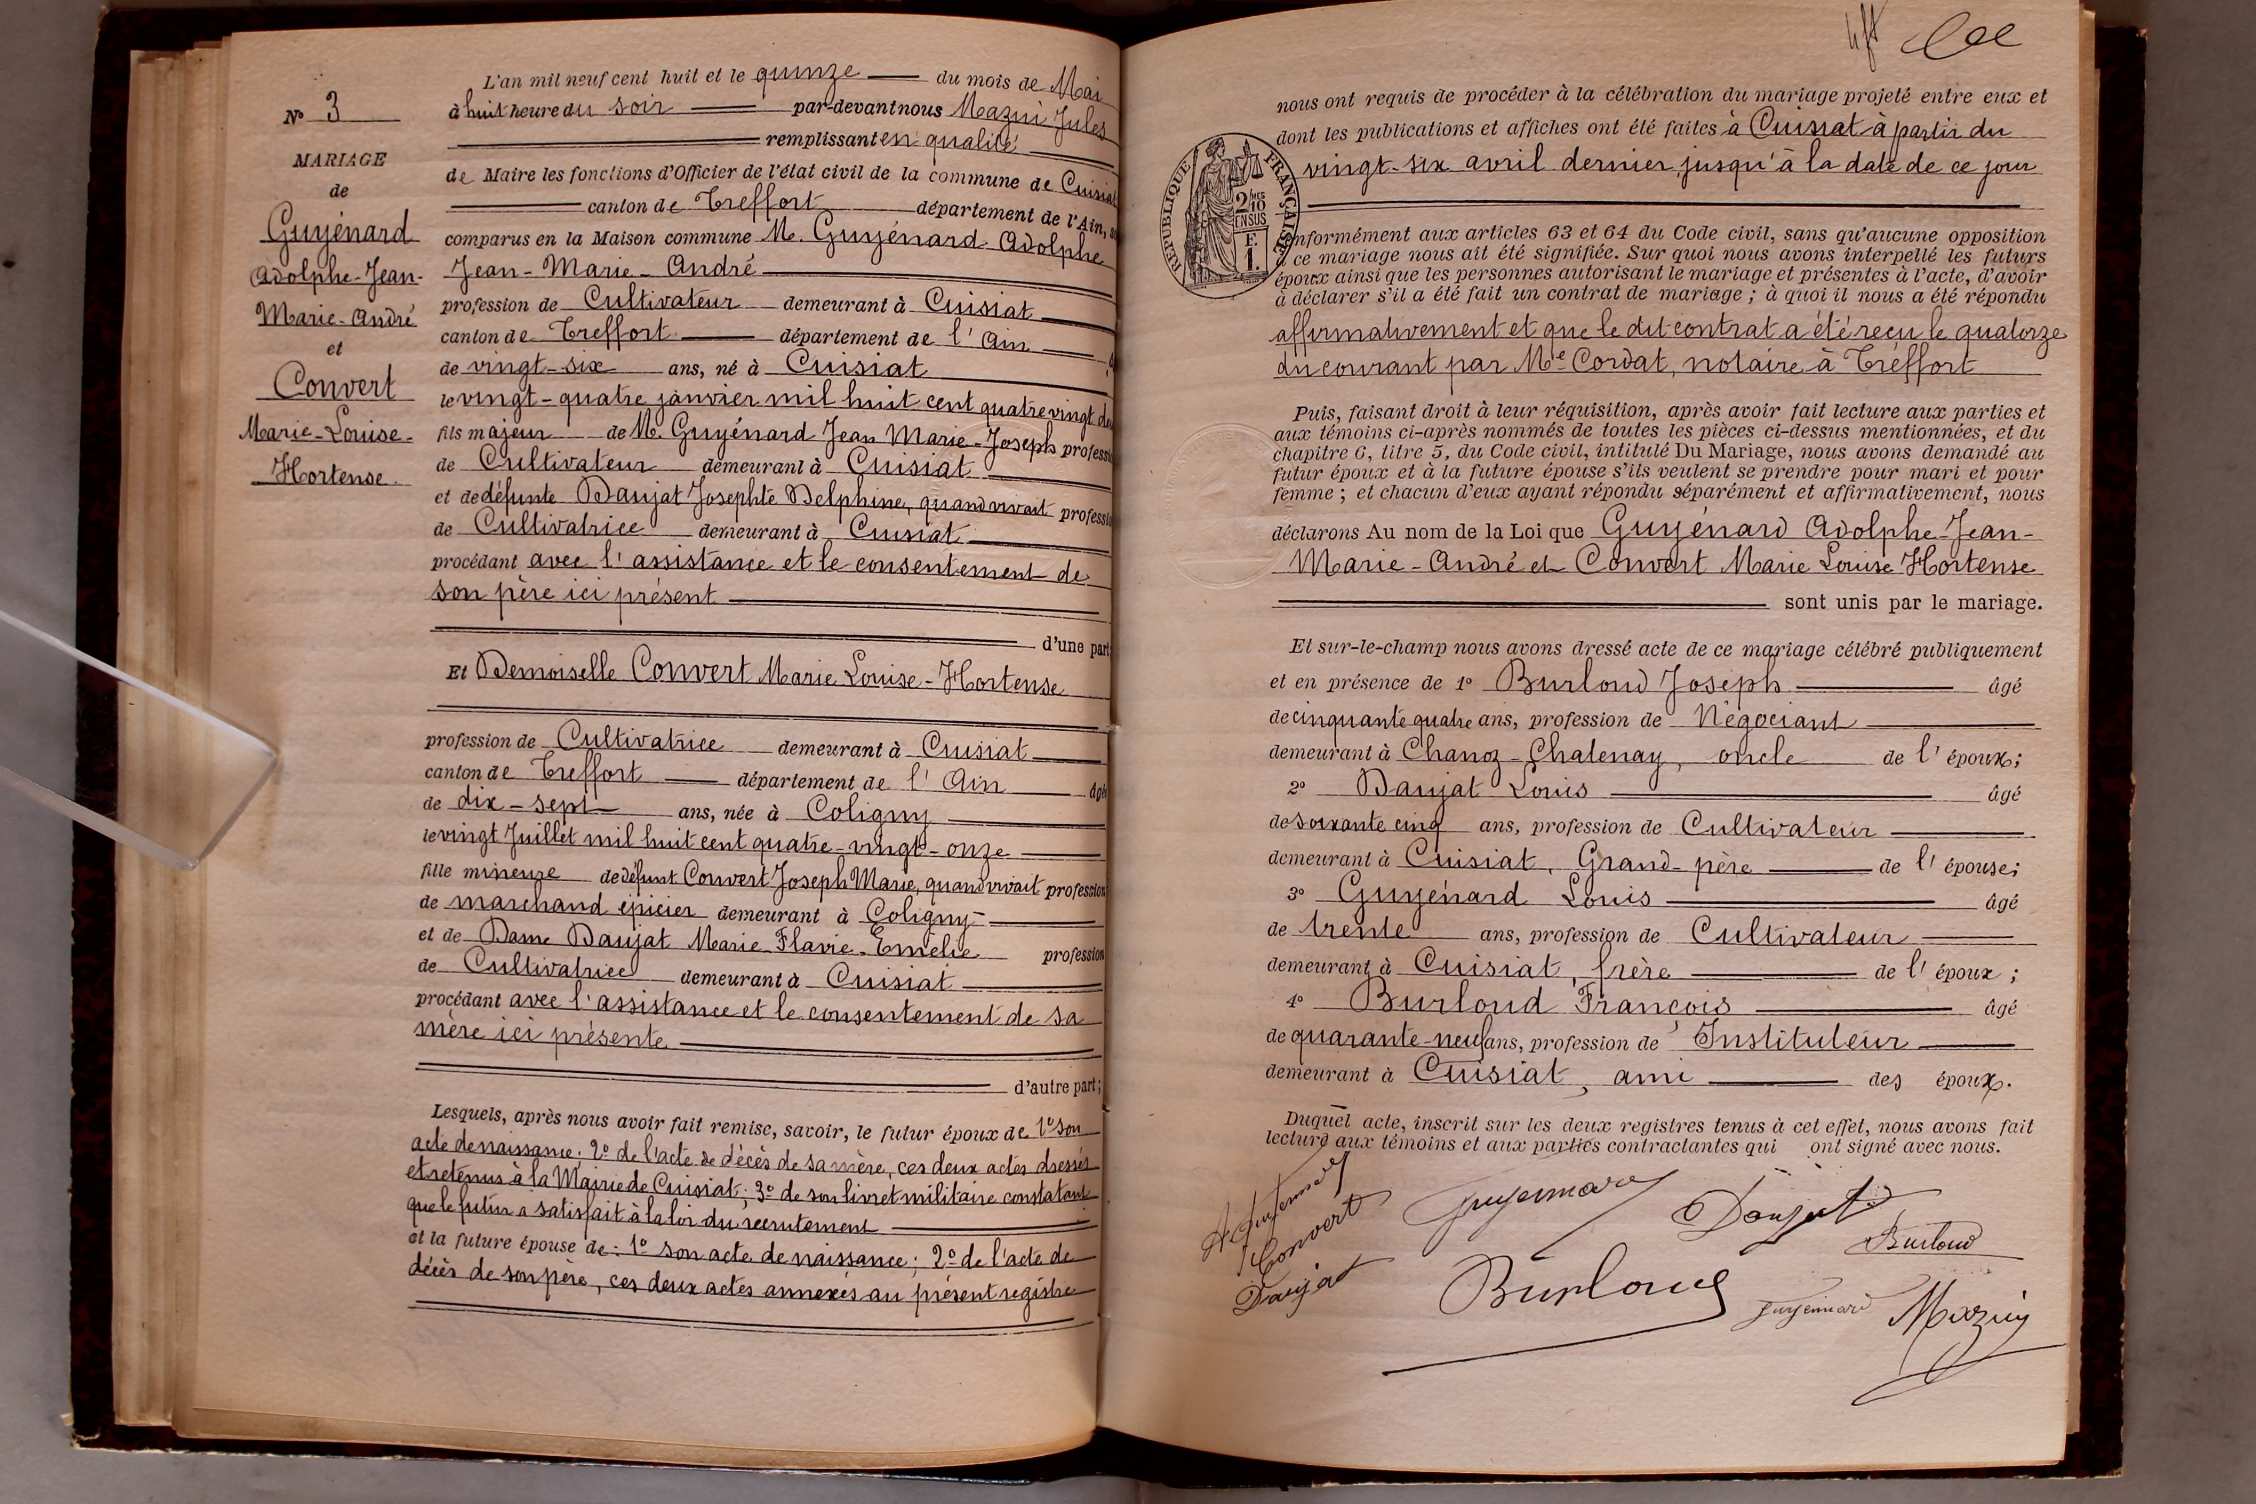 N° 3
MARIAGE
de
Guyénard
Adolphe-Jean-
Marie-André
et
Convert
Marie-Louise-
Hortense.
L'an mil neuf cent huit et le quinze du mois de Mai
à huit heure du soir par-devant nous Mazuir Jules
remplissant en qualité
de Maire les fonctions d'Officier de l'état civil de la commune de Cuisiat
canton de Treffort département de l'Ain,
comparus en la Maison commune M. Guyénard Adolphe
Jean-Marie-André
profession de Cultivateur demeurant à Cuisiat
canton de Treffort département de l'Ain
de vingt-six ans, né à Cuisiat
le vingt-quatre janvier mil huit cent quatre vingt
fils majeur de M. Guyénard Jean Marie-Joseph profess
de Cultivateur demeurant à Cuisiat
et de défunte Daujat Josephte Delphine, quand vivait profess
de Cultivatrice demeurant à Cuisiat
procédant avec l'assistance et le consentement de
son père ici présent
d'une part
Et Demoiselle Convert Marie Louise-Hortense
profession de Cultivatrice demeurant à Cuisiat
canton de Treffort département de l'Ain âgé
de dix-sept ans, née à Coligny
le vingt Juillet mil huit cent quatre-vingt-onze
fille mineure de défunt Convert Joseph Marie, quand vivait profession
de marchand épicier demeurant à Coligny-
et de Dame Daujat Marie Flavie-Emelie profession
de Cultivatrice demeurant à Cuisiat
procédant avec l'assistance et le consentement de sa
mère ici présente
d'autre part;
Lesquels, après nous avoir fait remise, savoir, le futur époux de 1° son
acte de naissance. 2° de l'acte de décès de sa mère, ces deux actes dressés
et retenus à la Mairie de Cuisiat; 3° de son livret militaire constatant
que le futur a satisfait à la loi du recrutement
et la future épouse de: 1° son acte de naissance; 2° de l'acte de
décès de son père, ces deux actes annexés au présent registre
nous ont requis de procéder à la célébration du mariage projeté entre eux et
dont les publications et affiches ont été faites à Cuisiat à partir du
vingt-six avril dernier jusqu'à la date de ce jour
RÉPUBLIQUE FRANÇAISE
2/10 EN SUS
F.
1.
onformément aux articles 63 et 64 du Code civil, sans qu'aucune opposition
à ce mariage nous ait été signifiée. Sur quoi nous avons interpellé les futurs
époux ainsi que les personnes autorisant le mariage et présentes à l'acte, d'avoir
à déclarer s'il a été fait un contrat de mariage; à quoi il nous a été répondu
affirmativement et que le dit contrat a été reçu le quatorze
du courant par Me Cordat, notaire à Treffort
Puis, faisant droit à leur réquisition, après avoir fait lecture aux parties et
aux témoins ci-après nommés de toutes les pièces ci-dessus mentionnées, et du
chapitre 6, titre 5, du Code civil, intitulé Du Mariage, nous avons demandé au
futur époux et à la future épouse s'ils veulent se prendre pour mari et pour
femme; et chacun d'eux ayant répondu séparément et affirmativement, nous
déclarons Au nom de la Loi que Guyénard Adolphe-Jean-
Marie-André et Convert Marie Louise Hortense
sont unis par le mariage.
Et sur-le-champ nous avons dressé acte de ce mariage célébré publiquement
et en présence de 1° Burloud Joseph âgé
de cinquante quatre ans, profession de Négociant
demeurant à Chanoz-Chatenay, oncle de l'époux;
2° Daujat Louis âgé
de soixante cinq ans, profession de Cultivateur
demeurant à Cuisiat, Grand-père de l'épouse;
3° Guyénard Louis âgé
de trente ans, profession de Cultivateur
demeurant à Cuisiat, frère de l'époux;
4° Burloud François âgé
de quarante-neuf ans, profession de Instituteur
demeurant à Cuisiat, ami des époux.
Duquel acte, inscrit sur les deux registres tenus à cet effet, nous avons fait
lecture aux témoins et aux parties contractantes qui ont signé avec nous.
Guyennard
Daujat
Convert
Burloud
Daujat
Burloud
Guyennard